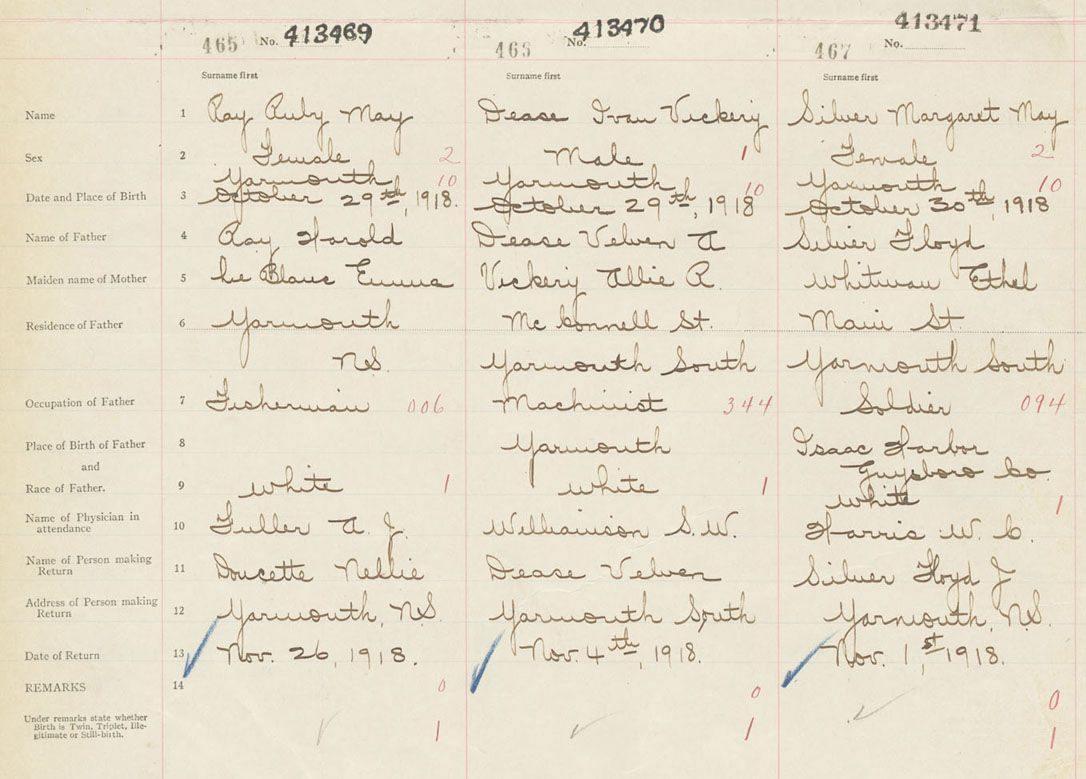 465 No. 413469
466 No. 413470
467 No. 413471
Surname first Surname first Surname first
Name 1 Ray Ruby May Dease Ivan Vickery Silver Margaret May
Sex 2 Female 2 Male 1 Female 2
Yarmouth 10 Yarmouth 10 Yarmouth 10
Date and Place of Birth 3 October 29th, 1918. October 29th, 1918 October 30th, 1918
Name of Father 4 Ray Harold Dease Velven A Silver Floyd
Maiden name of Mother 5 Le Blanc Emma Vickery Allie R. Whitman Ethel
Residence of Father 6 Yarmouth Mc Connell St. Main St.
NS. Yarmouth South Yarmouth South
Occupation of Father 7 Fisherman 006 Machinist 344 Soldier 094
Place of Birth of Father 8 Yarmouth Isaac Harbor
and Guysboro Co.
Race of Father. 9 White 1 White 1 White 1
Name of Physician in
attendance 10 Fuller A. J. Williamson S.W. Harris W. C.
Name of Person making
Return 11 Doucette Nellie Dease Velven Silver Floyd J
Address of Person making
Return 12 Yarmouth, NS. Yarmouth South Yarmouth, NS.
Date of Return 13 Nov. 26, 1918. Nov. 4th, 1918. Nov. 1st, 1918.
REMARKS 14 0 0 0
Under remarks state whether
Birth is Twin, Triplet, Ille-
gitimate or Still-birth. 1 1 1